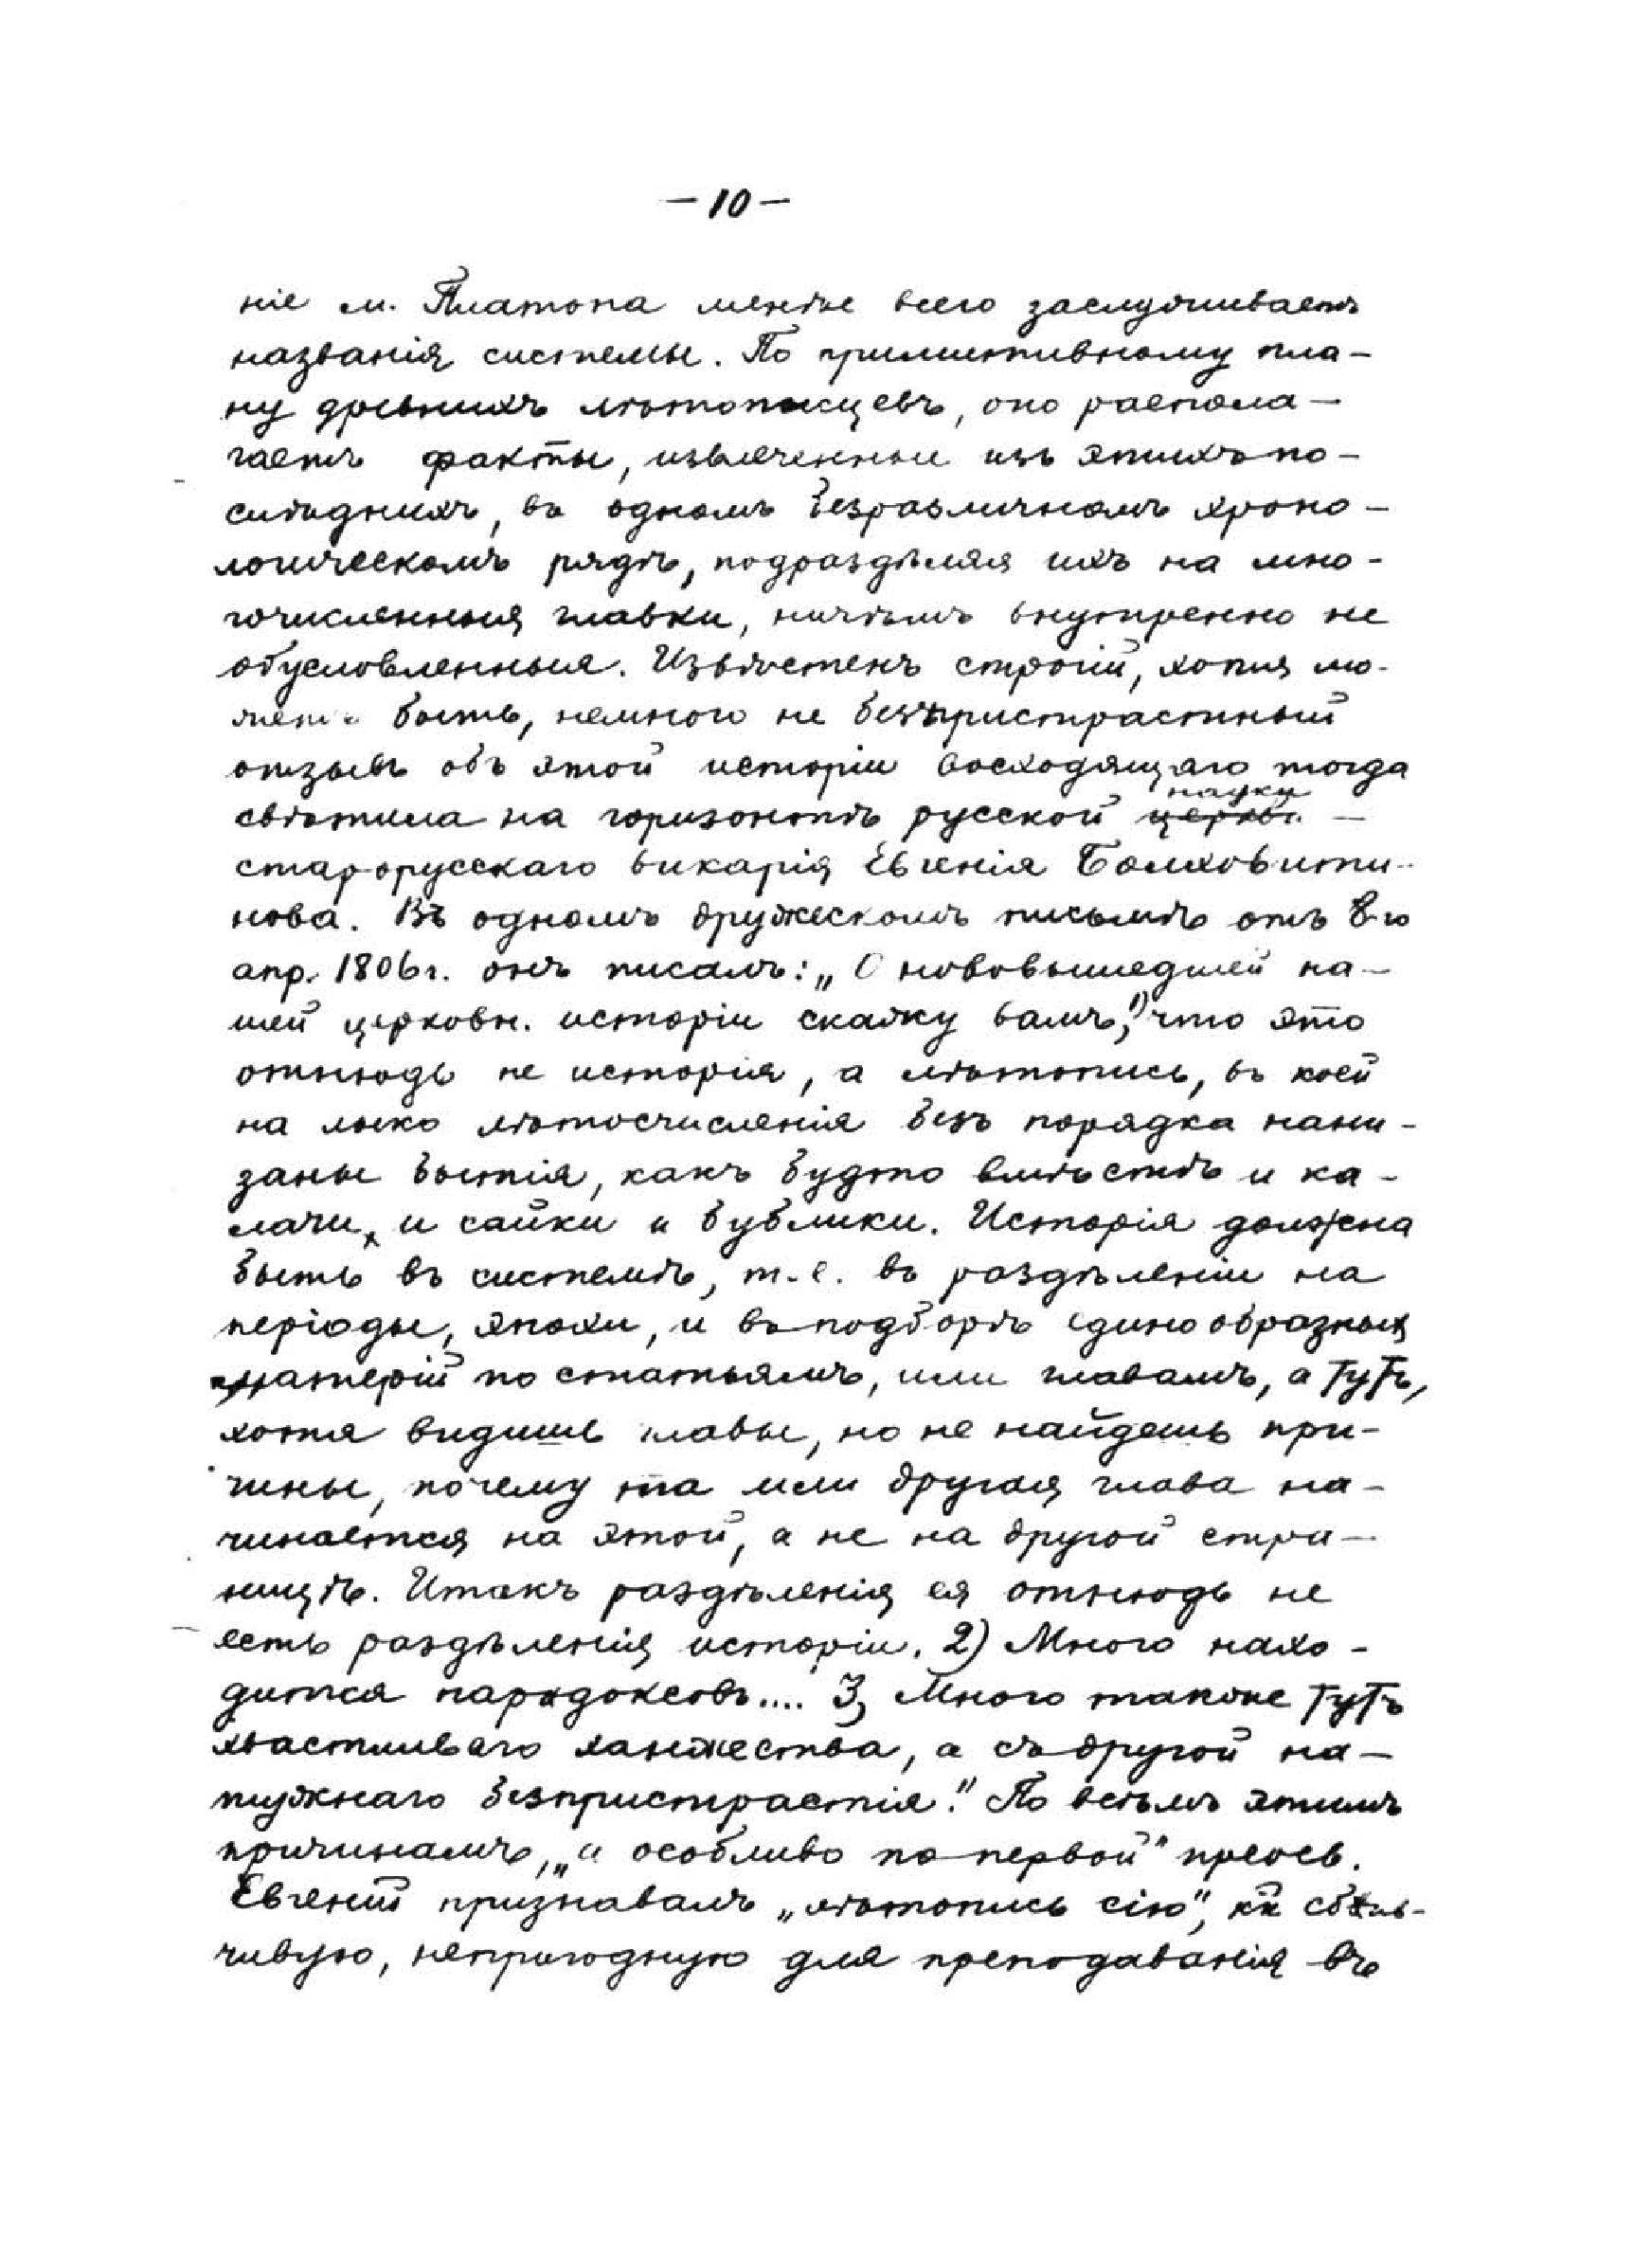 — 10 —
ніе м. Платона менѣе всего заслуживаетъ
названія системы. По примитивному пла-
ну древнихъ лѣтописцевъ, оно распола-
гаетъ факты, извлеченные изъ этихъ по-
слѣднихъ, въ одномъ безразличномъ хроно-
логическомъ рядѣ, подраздѣляя ихъ на мно-
гочисленныя главки, ничѣмъ внутренно не
обусловленныя. Извѣстенъ строгій, хотя мо-
жетъ быть, немного не безпристрастный
отзывъ объ этой исторіи восходящаго тогда
свѣтила на горизонтѣ русской науки —
старорусскаго викарія Евгенія Болховити-
нова. Въ одномъ дружескомъ письмѣ отъ 8-го
апр. 1806 г. онъ писалъ: „О нововышедшей на-
шей церковн. исторіи скажу вамъ, 1) что это
отнюдь не исторія, а лѣтопись, въ коей
на лыко лѣтосчисленія безъ порядка нани-
заны бытія, какъ будто вмѣстѣ и ка-
лачи, и сайки и бублики. Исторія должна
быть въ системѣ, т. е. въ раздѣленіи на
періоды, эпохи, и въ подборѣ единообразныхъ
матерій по статьямъ, или главамъ, а тутъ,
хотя видишь главы, но не найдешь при-
чины, почему та или другая глава на-
чинается на этой, а не на другой стра-
ницѣ. Итакъ раздѣленія ея отнюдь не
есть раздѣленія исторіи. 2) Много нахо-
дится парадоксовъ.... 3) Много также тутъ
хвастливаго ханжества, а съ другой на-
тужнаго безпристрастія." По всѣмъ этимъ
причинамъ, „и особливо по первой" преосв.
Евгеній признавалъ „лѣтопись сію", кк сбив-
чивую, непригодную для преподаванія въ